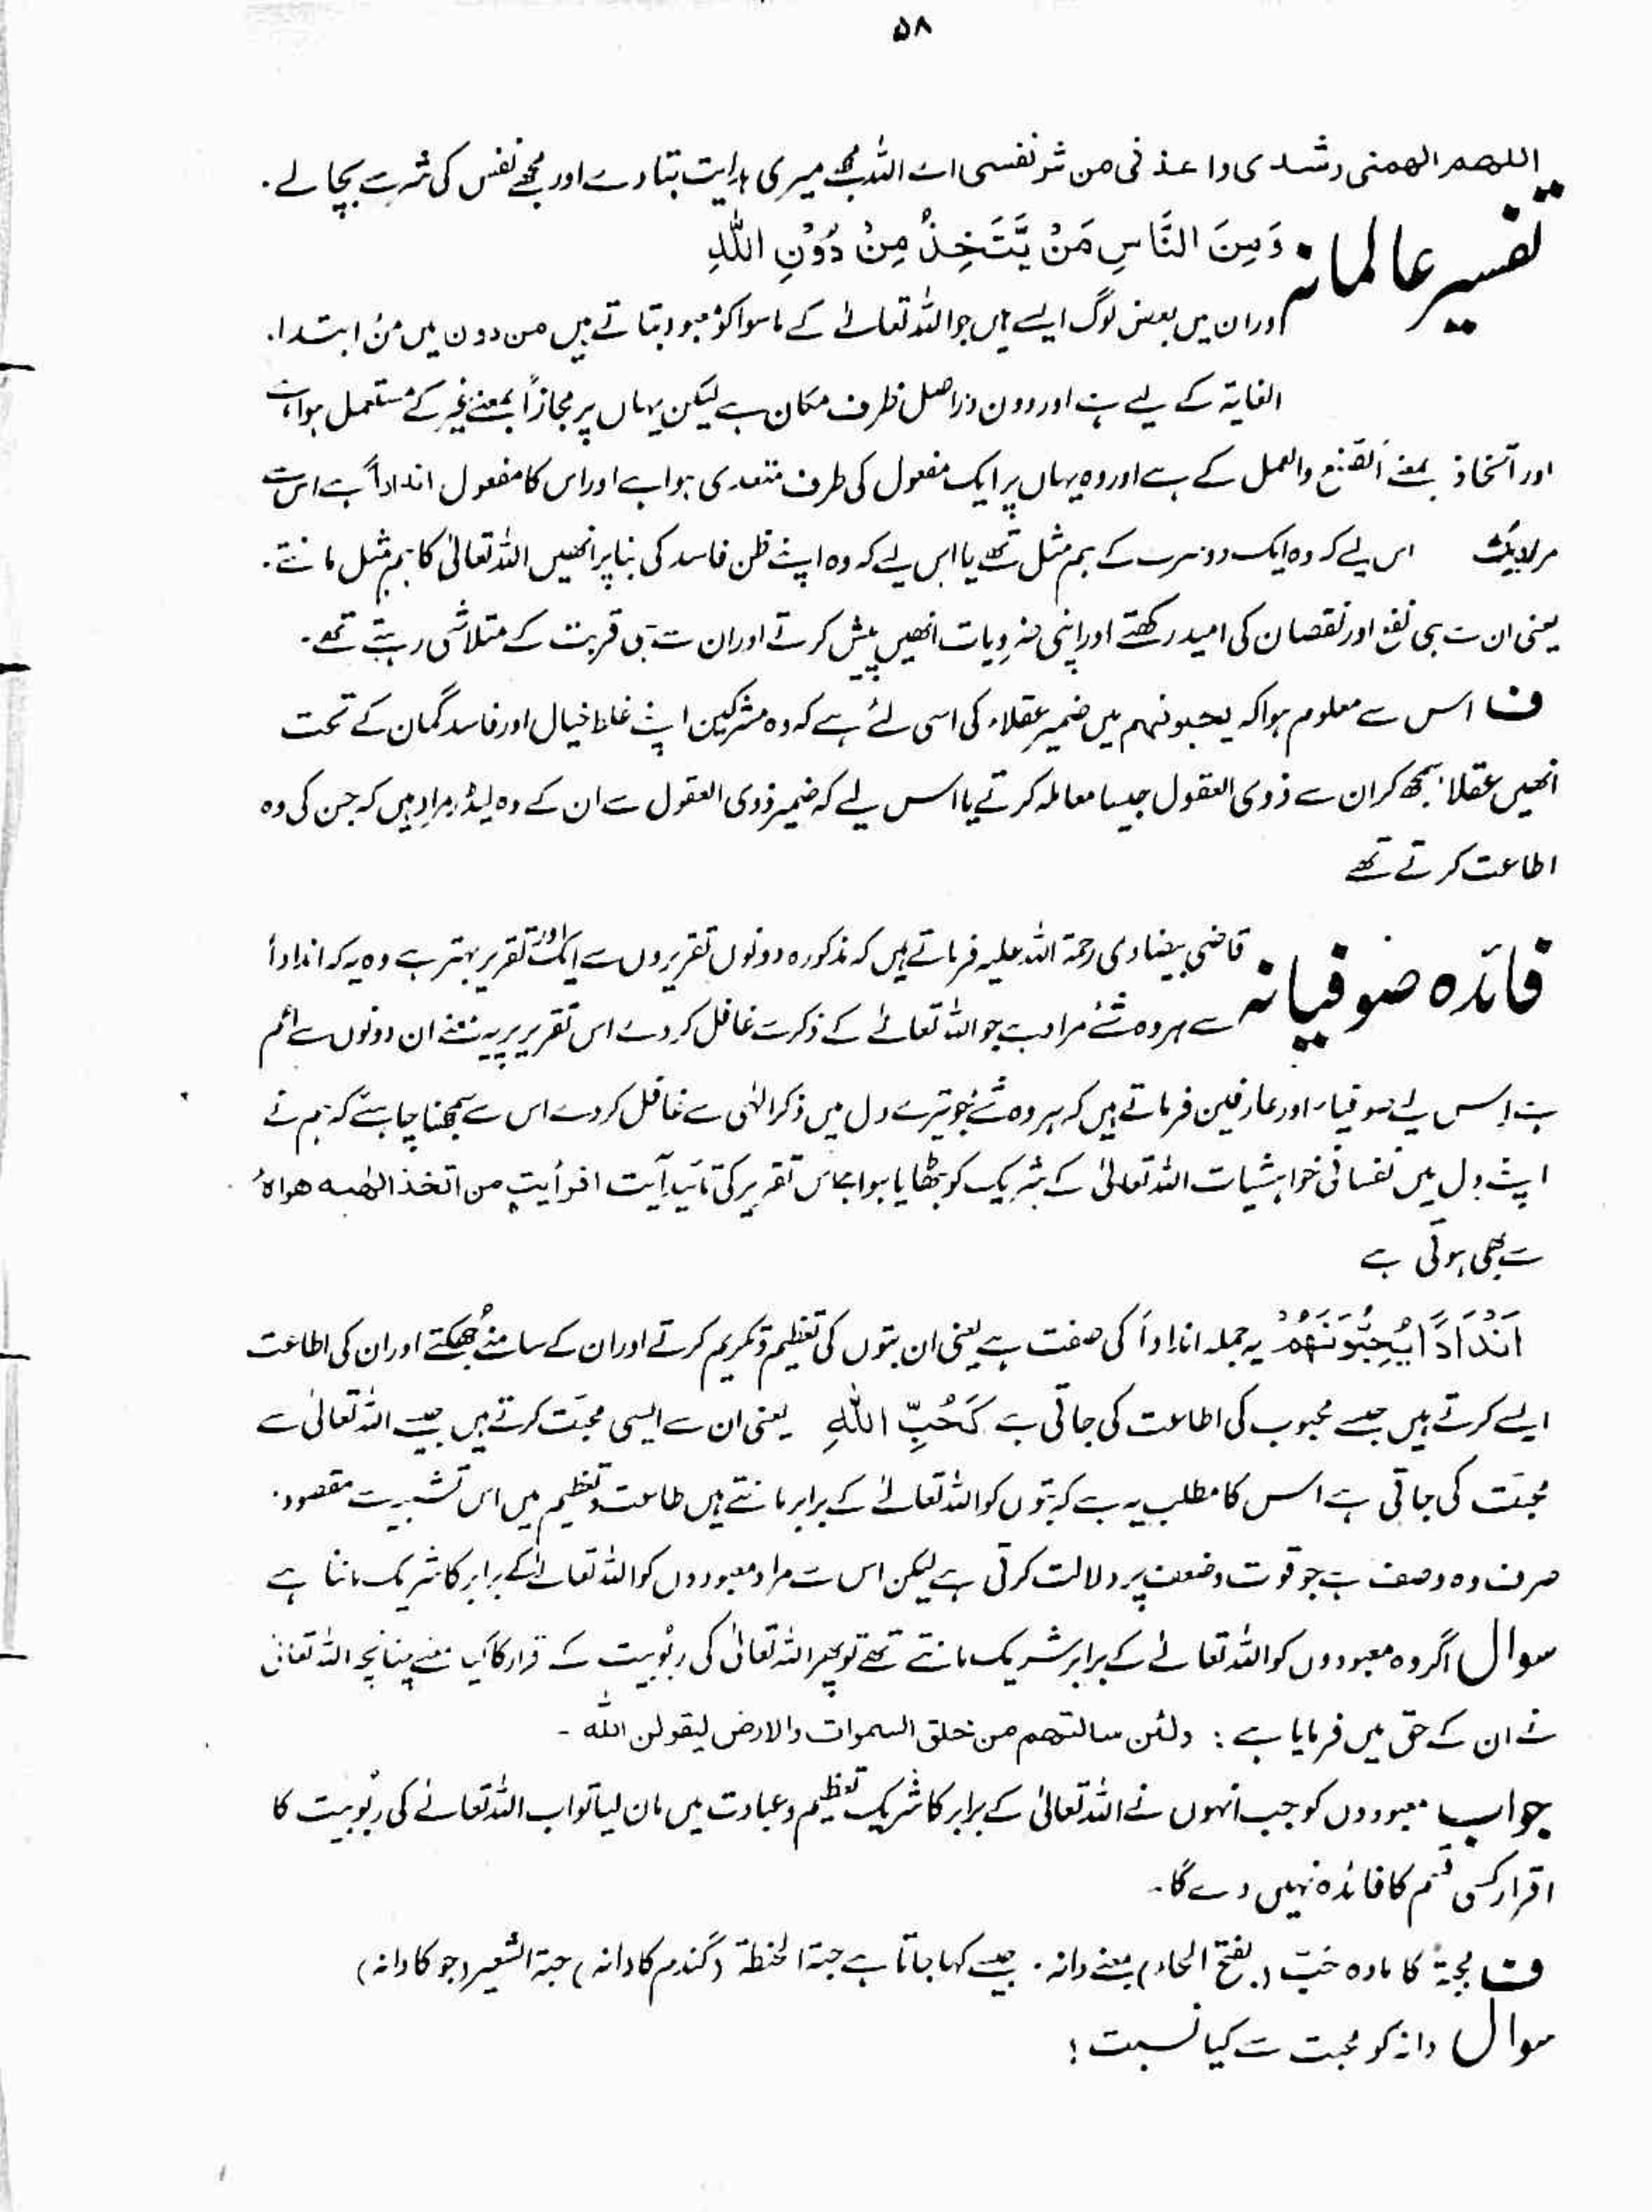 ۵۸
اللھم الھمنی رشدی واعذ نی من شر نفسی اے اللہ مجھے میری ہدایت بتا دے اور مجھے نفس کی شر سے بچا لے ۔
تفسیر عالمانہ وَمِنَ النَّاسِ مَنْ یَّتَّخِذُ مِنْ دُوْنِ اللّٰہِ
اور ان میں بعض لوگ ایسے ہیں جو اللہ تعالےٰ کے ماسوا کو معبود بناتے ہیں من دون میں منْ ابتداء
الغایۃ کے لیے ہے اور دون دراصل ظرف مکان ہے لیکن یہاں پر مجازاً بمعنے غیر کے مستعمل ہوا ہے
اور اتخاذ بمعنے الصنع والعمل کے ہے اور وہ یہاں پر ایک مفعول کی طرف متعدی ہوا ہے اور اس کا مفعول انداداً ہے اس سے
اس لیے کہ وہ ایک دوسرے کے ہم مثل تھے یا اس لیے کہ وہ اپنے ظن فاسد کی بنا پر انھیں اللہ تعالیٰ کا ہم مثل مانتے ۔
یعنی ان سے ہی نفع اور نقصان کی امید رکھتے اور اپنی انھیں پیش کرتے اور ان سے ہی قربت کے متلاشی رہتے تھے ۔
ف اس سے معلوم ہوا کہ یحبونہم میں ضمیر عقلاء کی اسی لئے ہے کہ وہ مشرکین اپنے غلط خیال اور فاسد گمان کے تحت
انھیں عقلاء سمجھ کر ان سے ذوی العقول جیسا معاملہ کرتے یا اس لیے کہ ضمیر ذوی العقول سے ان کے وہ لیڈر مراد ہیں کہ جن کی وہ
اطاعت کرتے تھے
فائدہ صوفیانہ قاضی بیضاوی رحمۃ اللہ علیہ فرماتے ہیں کہ مذکورہ دونوں تقریروں سے ایک اور تقریر بہتر ہے وہ یہ کہ انداداً
سے ہر وہ شئے مراد ہے جو اللہ تعالےٰ کے ذکر سے غافل کر دے اس تقریر پر یہ معنے ان دونوں سے اعم
ہے اس لیے صوفیاء اور عارفین فرماتے ہیں کہ ہر وہ شئے جو تیرے دل میں ذکر الٰہی سے غافل کر دے اس سے سمجھنا چاہئے کہ ہم نے
اپنے دل میں نفسانی خواہشات اللہ تعالیٰ کے شریک کو بٹھایا ہوا ہے اس تقریر کی تائید آیت افرأیت من اتخذ الٰھہ ھواہٗ
سے بھی ہوتی ہے
اَنْدَادًا یُّحِبُّوْنَھُمْ یہ جملہ انداداً کی صفت ہے یعنی ان بتوں کی تعظیم و تکریم کرتے اور ان کے سامنے جھکتے اور ان کی اطاعت
ایسے کرتے ہیں جیسے محبوب کی اطاعت کی جاتی ہے کَحُبِّ اللّٰہِ یعنی ان سے ایسی محبت کرتے ہیں جیسے اللہ تعالیٰ سے
محبت کی جاتی ہے اس کا مطلب یہ ہے کہ بتوں کو اللہ تعالےٰ کے برابر مانتے ہیں طاعت و تعظیم میں اس تشبیہ سے مقصود ۔
صرف وہ وصف ہے جو قوت و ضعف پر دلالت کرتی ہے لیکن اس سے مراد معبودوں کو اللہ تعالےٰ کے برابر کا شریک ماننا ہے
سوال اگر وہ معبودوں کو اللہ تعالےٰ کے برابر شریک مانتے تھے تو پھر اللہ تعالیٰ کی ربوبیت کے قرار کا کیا معنے چنانچہ اللہ تعالیٰ
نے ان کے حق میں فرمایا ہے : ولئن سالتھم من خلق السموات والارض لیقولن اللہ ۔
جواب معبودوں کو جب انہوں نے اللہ تعالیٰ کے برابر کا شریک تعظیم و عبادت میں مان لیا تو اب اللہ تعالےٰ کی ربوبیت کا
اقرار کسی قسم کا فائدہ نہیں دے گا ۔
ف محبۃ کا مادہ حَبّ (بفتح الحاء) بمعنے دانہ ۔ جیسے کہا جاتا ہے حبۃ الحنطۃ (گندم کا دانہ) حبۃ الشعیر (جو کا دانہ)
سوال دانہ کو محبت سے کیا نسبت ؛